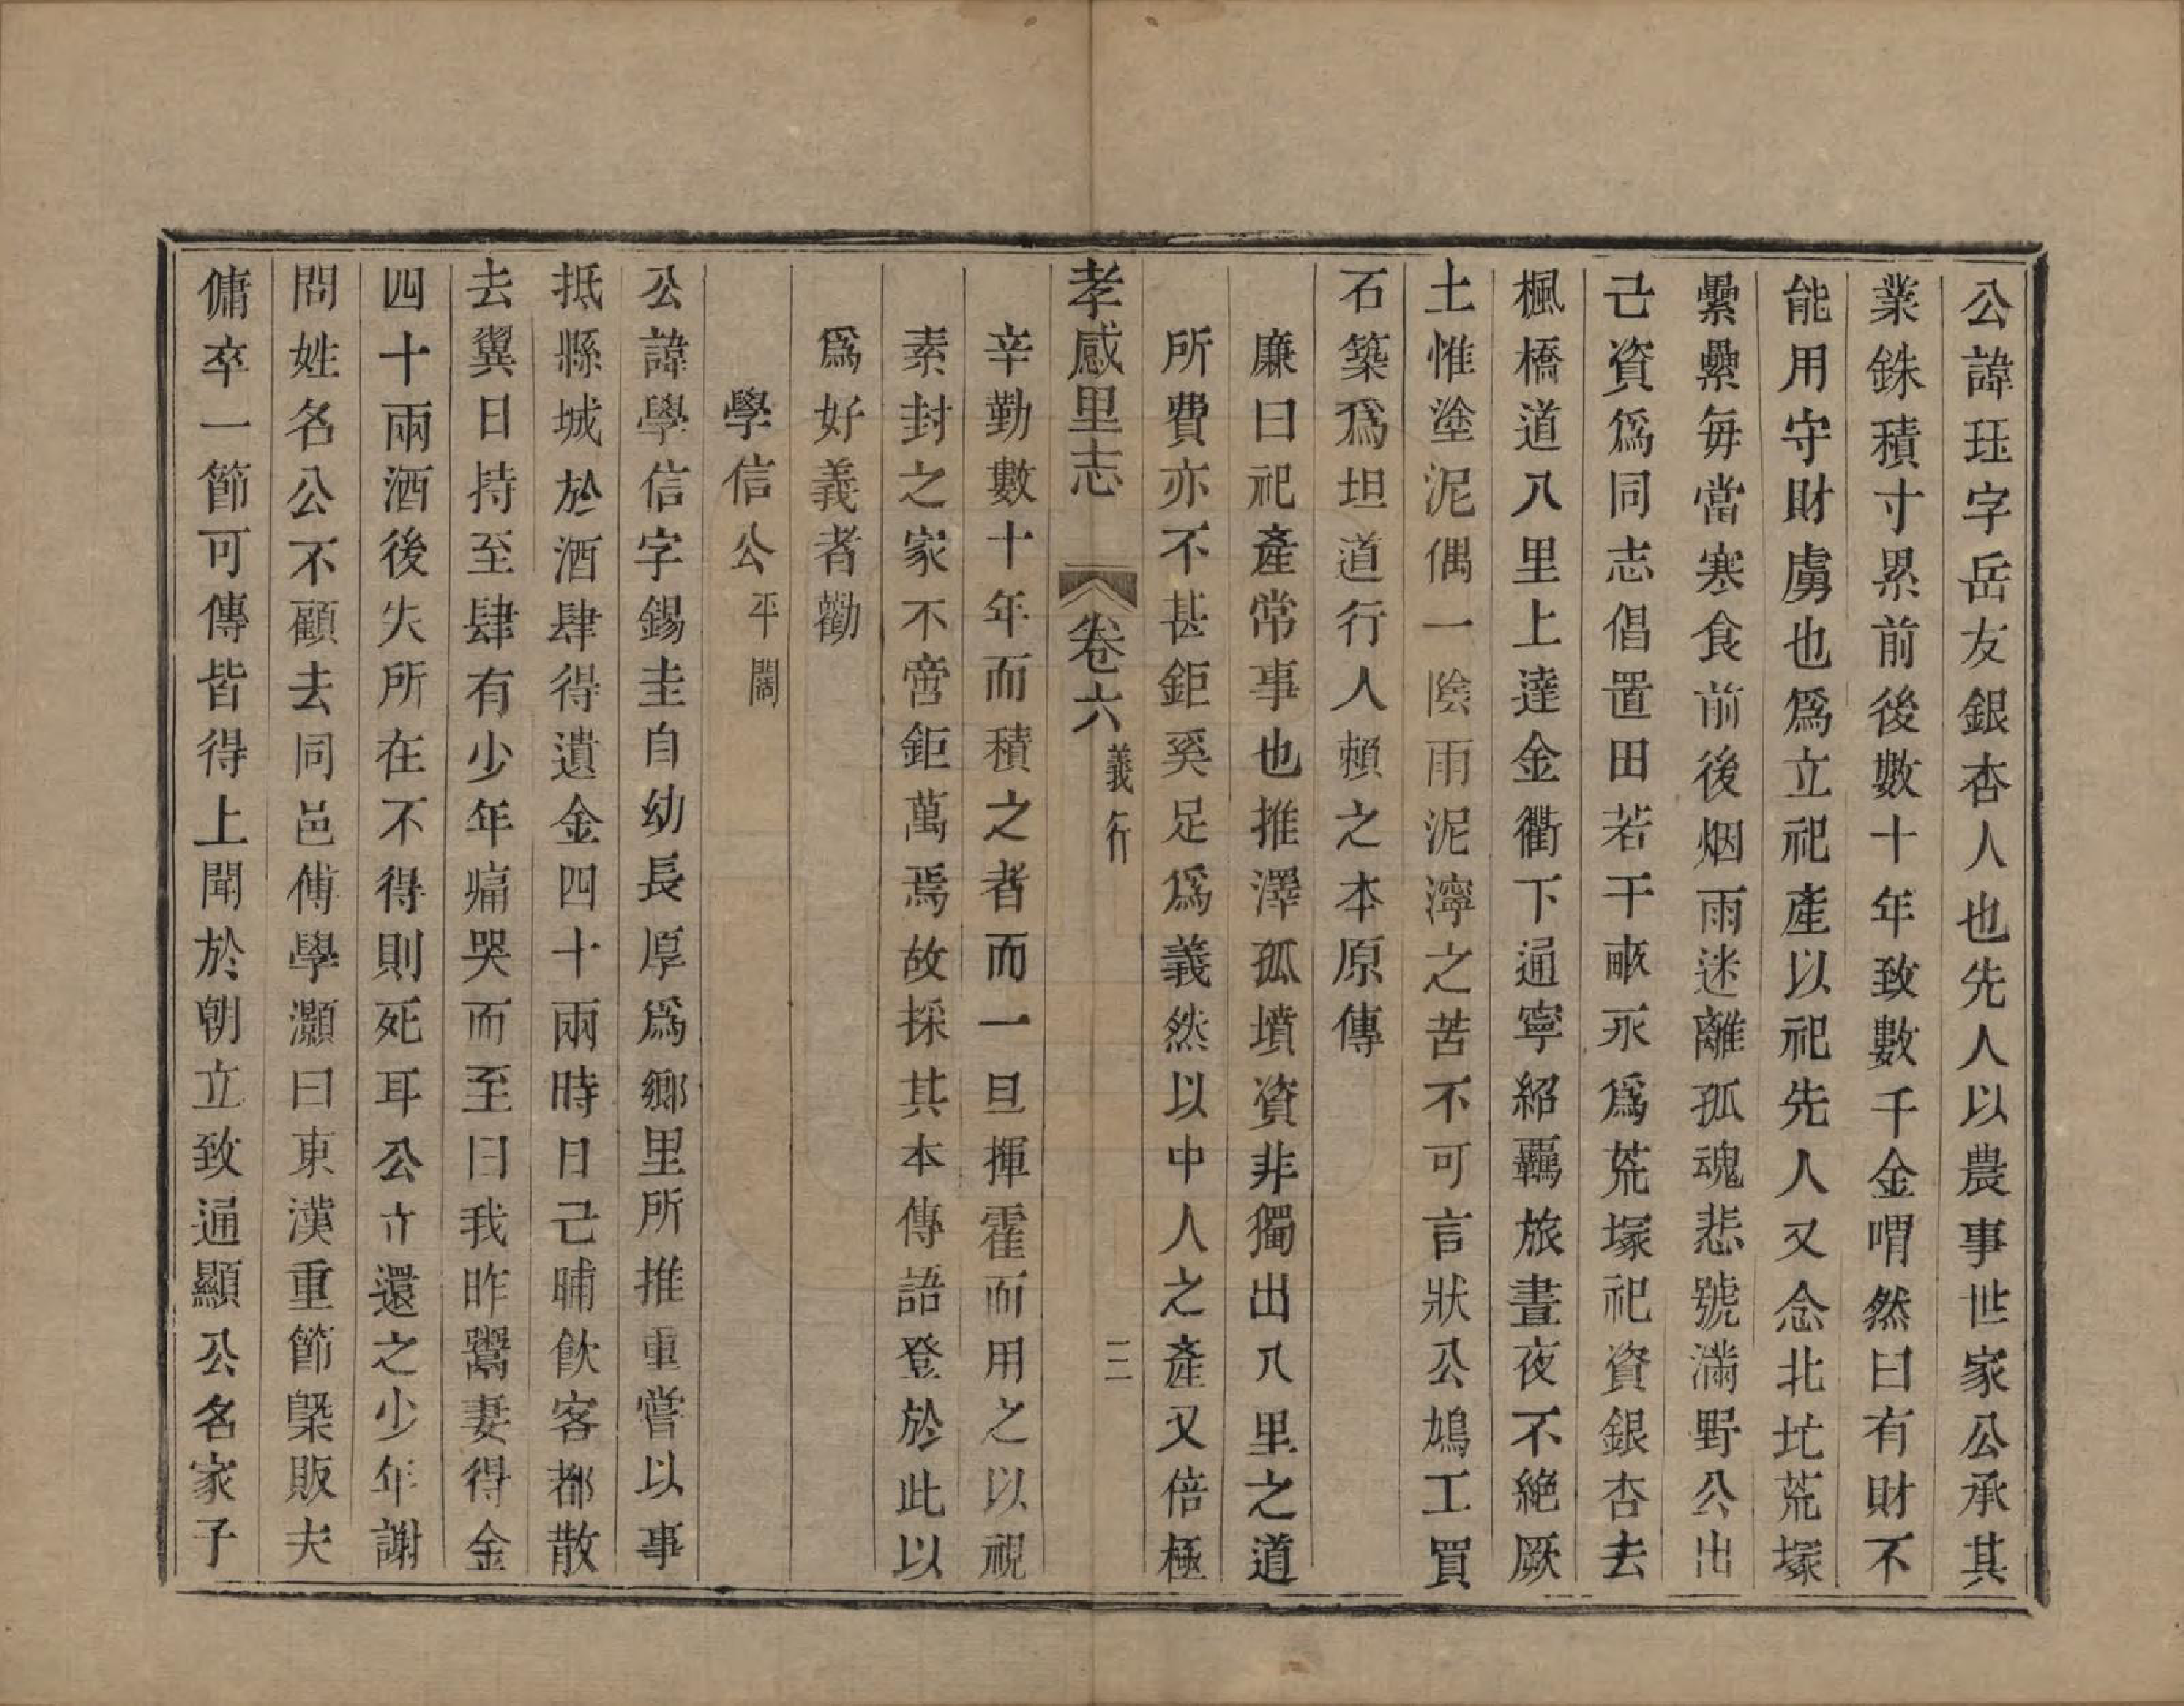 公諱珏字岳友銀杏人也先人以農事世家公承其
業銖積寸累前後數十年致數千金喟然曰有財不
能用守財虜也爲立祀產以祀先人又念北圵荒塚
纍纍每當寒食前後烟雨迷離孤魂悲號滿野公出
己資爲同志倡置田若干畝永爲荒塚祀資銀杏去
楓橋道八里上達金衢下通寧紹羈旅晝夜不絶厥
土惟塗泥偶一陰雨泥濘之苦不可言狀公鳩工買
石築爲坦道行人頼之本原傳
廉曰祀產常事也推澤孤墳資非獨出八里之道
所費亦不甚鉅奚足爲義然以中人之產又倍極
孝感里志 卷六 義行 二
辛勤數十年而積之者而一旦揮霍而用之以視
素封之家不啻鉅萬焉故採其本傳語登於此以
爲好義者勸
學信公平闊
公諱學信字錫圭自幼長厚爲鄉里所推重嘗以事
抵縣城於酒肆得遺金四十兩時日己晡飲客都散
去翼日持至肆有少年痛哭而至曰我昨鬻妻得金
四十兩酒後失所在不得則死耳公立還之少年謝
問姓名公不顧去同邑傅學灝曰東漢重節槩販夫
傭卒一節可傳皆得上聞於朝立致通顯公名家子